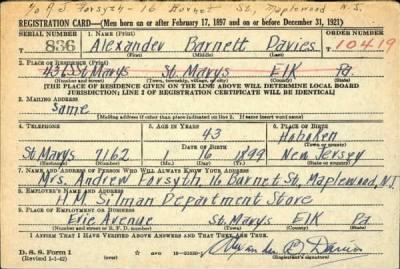 % A J Forsyth - 16 Burnet St, Maplewood N.J.
REGISTRATION CARD—(Men born on or after February 17, 1897 and on or before December 31, 1921)
SERIAL NUMBER 1. NAME (Print) ORDER NUMBER
836 Alexander Barnett Davies 10419
(First) (Middle) (Last)
2. PLACE OF RESIDENCE (Print)
St. Marys St. Marys Elk Pa
(Number and street) (Town, township, village, or city) (County) (State)
[THE PLACE OF RESIDENCE GIVEN ON THE LINE ABOVE WILL DETERMINE LOCAL BOARD
JURISDICTION; LINE 2 OF REGISTRATION CERTIFICATE WILL BE IDENTICAL]
3. MAILING ADDRESS
Same
[Mailing address if other than place indicated on line 2. If same insert word same]
4. TELEPHONE 5. AGE IN YEARS 6. PLACE OF BIRTH
43 Hoboken
DATE OF BIRTH (Town or county)
St Marys 7162 1 16 1899 New Jersey
(Exchange) (Number) (Mo.) (Day) (Yr.) (State or country)
7. NAME AND ADDRESS OF PERSON WHO WILL ALWAYS KNOW YOUR ADDRESS
Mrs. Andrew Forsyth, 16 Burnet St, Maplewood, N.J.
8. EMPLOYER'S NAME AND ADDRESS
H M Silman Department Store
9. PLACE OF EMPLOYMENT OR BUSINESS
Erie Avenue St Marys Elk Pa
(Number and street or R. F. D. number) (Town) (County) (State)
I AFFIRM THAT I HAVE VERIFIED ABOVE ANSWERS AND THAT THEY ARE TRUE.
D. S. S. Form 1
(Revised 1-1-42) (over) Alexander B. Davies
(Registrant's signature)